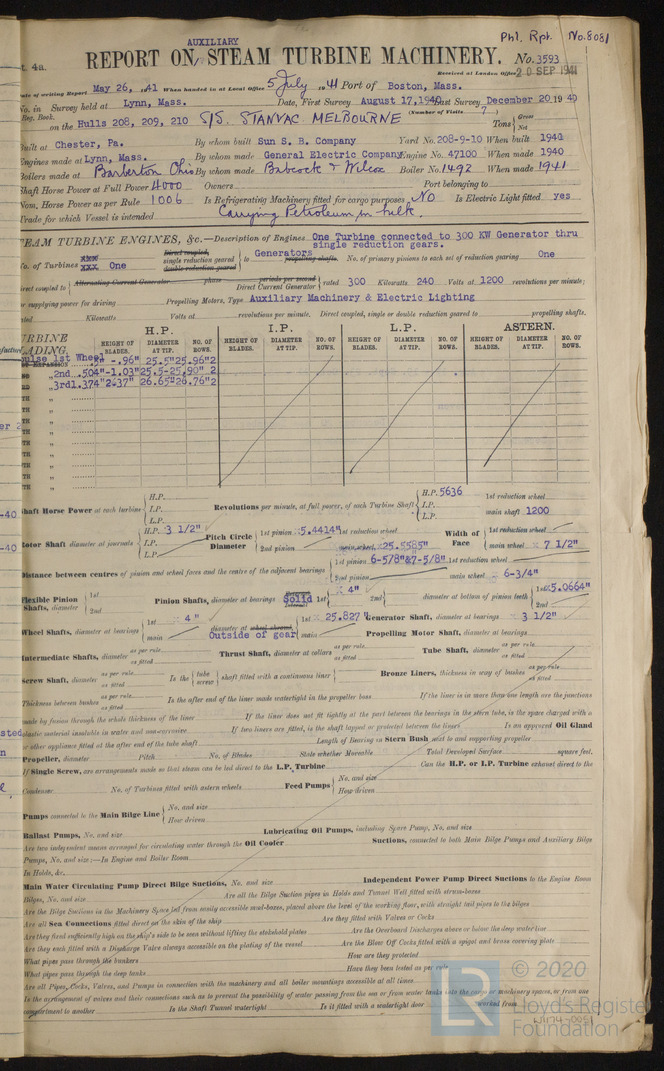 Phl. Rpt. No. 8081
AUXILIARY
t. 4a.
REPORT ON STEAM TURBINE MACHINERY. No. 3593
Received at London Office 20 SEP 1941
Date of writing Report May 26, 1941 When handed in at Local Office 5 July 1941 Port of Boston, Mass.
No. in Survey held at Lynn, Mass. Date, First Survey August 17, 1940 Last Survey December 20 1940
Reg. Book. (Number of Visits 7)
on the Hulls 208, 209, 210 S/S. STANVAC MELBOURNE Tons Gross Net
Built at Chester, Pa. By whom built Sun S. B. Company Yard No. 208-9-10 When built 1941
Engines made at Lynn, Mass. By whom made General Electric Company Engine No. 47100 When made 1940
Boilers made at Barberton Ohio By whom made Babcock & Wilcox Boiler No. 1492 When made 1941
Shaft Horse Power at Full Power 4000 Owners Port belonging to
Nom. Horse Power as per Rule 1006 Is Refrigerating Machinery fitted for cargo purposes NO Is Electric Light fitted yes
Trade for which Vessel is intended Carrying Petroleum in bulk.
STEAM TURBINE ENGINES, &c.—Description of Engines One Turbine connected to 300 KW Generator thru
single reduction gears.
No. of Turbines One Direct coupled, single reduction geared double reduction geared to Generators propelling shafts. No. of primary pinions to each set of reduction gearing One
direct coupled to Alternating Current Generator phase periods per second Direct Current Generator rated 300 Kilowatts 240 Volts at 1200 revolutions per minute;
for supplying power for driving Propelling Motors, Type Auxiliary Machinery & Electric Lighting
rated Kilowatts Volts at revolutions per minute. Direct coupled, single or double reduction geared to propelling shafts.
TURBINE BLADING. H.P. I.P. L.P. ASTERN.
HEIGHT OF BLADES. DIAMETER AT TIP. NO. OF ROWS. HEIGHT OF BLADES. DIAMETER AT TIP. NO. OF ROWS. HEIGHT OF BLADES. DIAMETER AT TIP. NO. OF ROWS. HEIGHT OF BLADES. DIAMETER AT TIP. NO. OF ROWS.
Impulse 1st Wheel -.96" 25.5"25.96"2
2nd .504"-1.03"25.5-25.90" 2
3rd1.374"2.37" 26.65"26.76"2
Shaft Horse Power at each turbine H.P. I.P. L.P. Revolutions per minute, at full power, of each Turbine Shaft H.P. 5636 I.P. L.P. 1st reduction wheel main shaft 1200
Rotor Shaft diameter at journals H.P. 3 1/2" I.P. L.P. Pitch Circle Diameter 1st pinion 5.4414" 1st reduction wheel 2nd pinion main wheel 25.5585" Width of Face 1st reduction wheel main wheel 7 1/2"
Distance between centres of pinion and wheel faces and the centre of the adjacent bearings 1st pinion 6-5/8"&7-5/8" 2nd pinion 1st reduction wheel main wheel 6-3/4"
Flexible Pinion Shafts, diameter 1st 2nd Pinion Shafts, diameter at bearings Solid 1st 4" 2nd diameter at bottom of pinion teeth 1st 5.0664" 2nd
Wheel Shafts, diameter at bearings 1st 4" main diameter at wheel shroud, Outside of gear 1st 25.827" main Generator Shaft, diameter at bearings 3 1/2"
Propelling Motor Shaft, diameter at bearings
Intermediate Shafts, diameter as per rule as fitted Thrust Shafts, diameter at collars as per rule as fitted Tube Shaft, diameter as per rule as fitted
Screw Shaft, diameter as per rule as fitted Is the tube screw shaft fitted with a continuous liner Bronze Liners, thickness in way of bushes as per rule as fitted
Thickness between bushes as per rule as fitted Is the after end of the liner made watertight in the propeller boss If the liner is in more than one length are the junctions
made by fusion through the whole thickness of the liner If the liner does not fit tightly at the part between the bearings in the stern tube, is the space charged with a
plastic material insoluble in water and non-corrosive If two liners are fitted, is the shaft lapped or protected between the liners Is an approved Oil Gland
or other appliance fitted at the after end of the tube shaft Length of Bearing in Stern Bush next to and supporting propeller
Propeller, diameter Pitch No. of Blades State whether Moveable Total Developed Surface square feet.
If Single Screw, are arrangements made so that steam can be led direct to the L.P. Turbine Can the H.P. or I.P. Turbine exhaust direct to the
Condenser No. of Turbines fitted with astern wheels Feed Pumps No. and size How driven
Pumps connected to the Main Bilge Line No. and size How driven
Ballast Pumps, No. and size Lubricating Oil Pumps, including Spare Pump, No. and size
Are two independent means arranged for circulating water through the Oil Cooler Suctions, connected to both Main Bilge Pumps and Auxiliary Bilge
Pumps, No. and size:—In Engine and Boiler Room
In Holds, &c.
Main Water Circulating Pump Direct Bilge Suctions, No. and size Independent Power Pump Direct Suctions to the Engine Room
Bilges, No. and size Are all the Bilge Suction pipes in Holds and Tunnel Well fitted with strum-boxes
Are the Bilge Suctions in the Machinery Space led from easily accessible mud-boxes, placed above the level of the working floor, with straight tail pipes to the bilges
Are all Sea Connections fitted direct on the skin of the ship Are they fitted with Valves or Cocks
Are they fixed sufficiently high on the ship's side to be seen without lifting the stokehold plates Are the Overboard Discharges above or below the deep water line
Are they each fitted with a Discharge Valve always accessible on the plating of the vessel Are the Blow Off Cocks fitted with a spigot and brass covering plate
What pipes pass through the bunkers How are they protected
What pipes pass through the deep tanks Have they been tested as per rule
Are all Pipes, Cocks, Valves, and Pumps in connection with the machinery and all boiler mountings accessible at all times
Is the arrangement of valves and their connections such as to prevent the possibility of water passing from the sea or from water tanks into the cargo or machinery spaces, or from one
compartment to another Is the Shaft Tunnel watertight Is it fitted with a watertight door worked from
© 2020
Lloyd's Register
Foundation
W174-0051